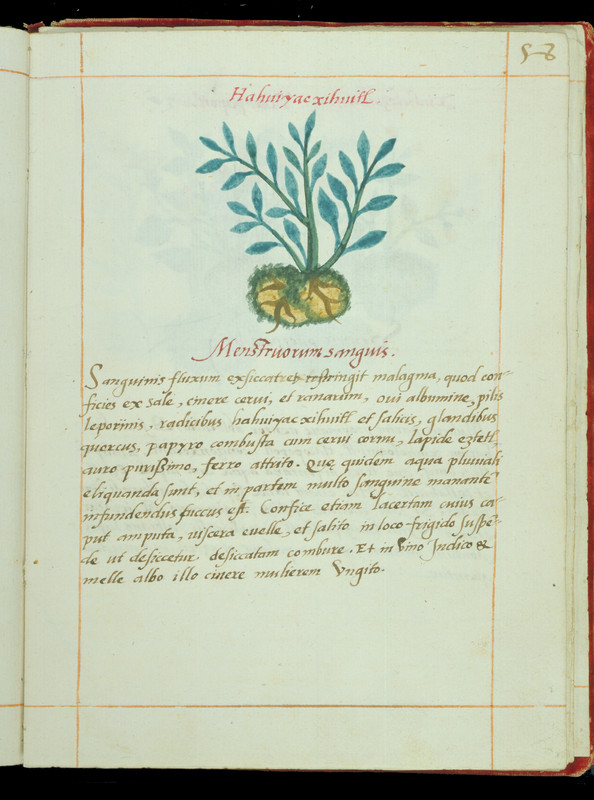 58
Hahuiyac xihuitl.
Menstruorum sanguis.
Sanguinis fluxum exsiccat et restringit malagma, quod con-
ficies ex sale, cinere cerui, et ranarum, oui albumine, pilis
leporinis, radicibus hahuiyac xihuitl et salicis, glandibus
quercus, papyro combusta cum cerui cornu, lapide eztetl
auro purißimo, ferro attrito. Quę quidem aqua pluuiali
eliquanda sunt, et in partem multo sanguine manantē
infundendus succus est. Confice etiam lacertam cuius ca-
put amputa, uiscera euelle, et salito in loco frigido suspē-
de ut desiccetur. desiccatam combure. Et in vino Indico &
melle albo illo cinere mulierem Vngito.